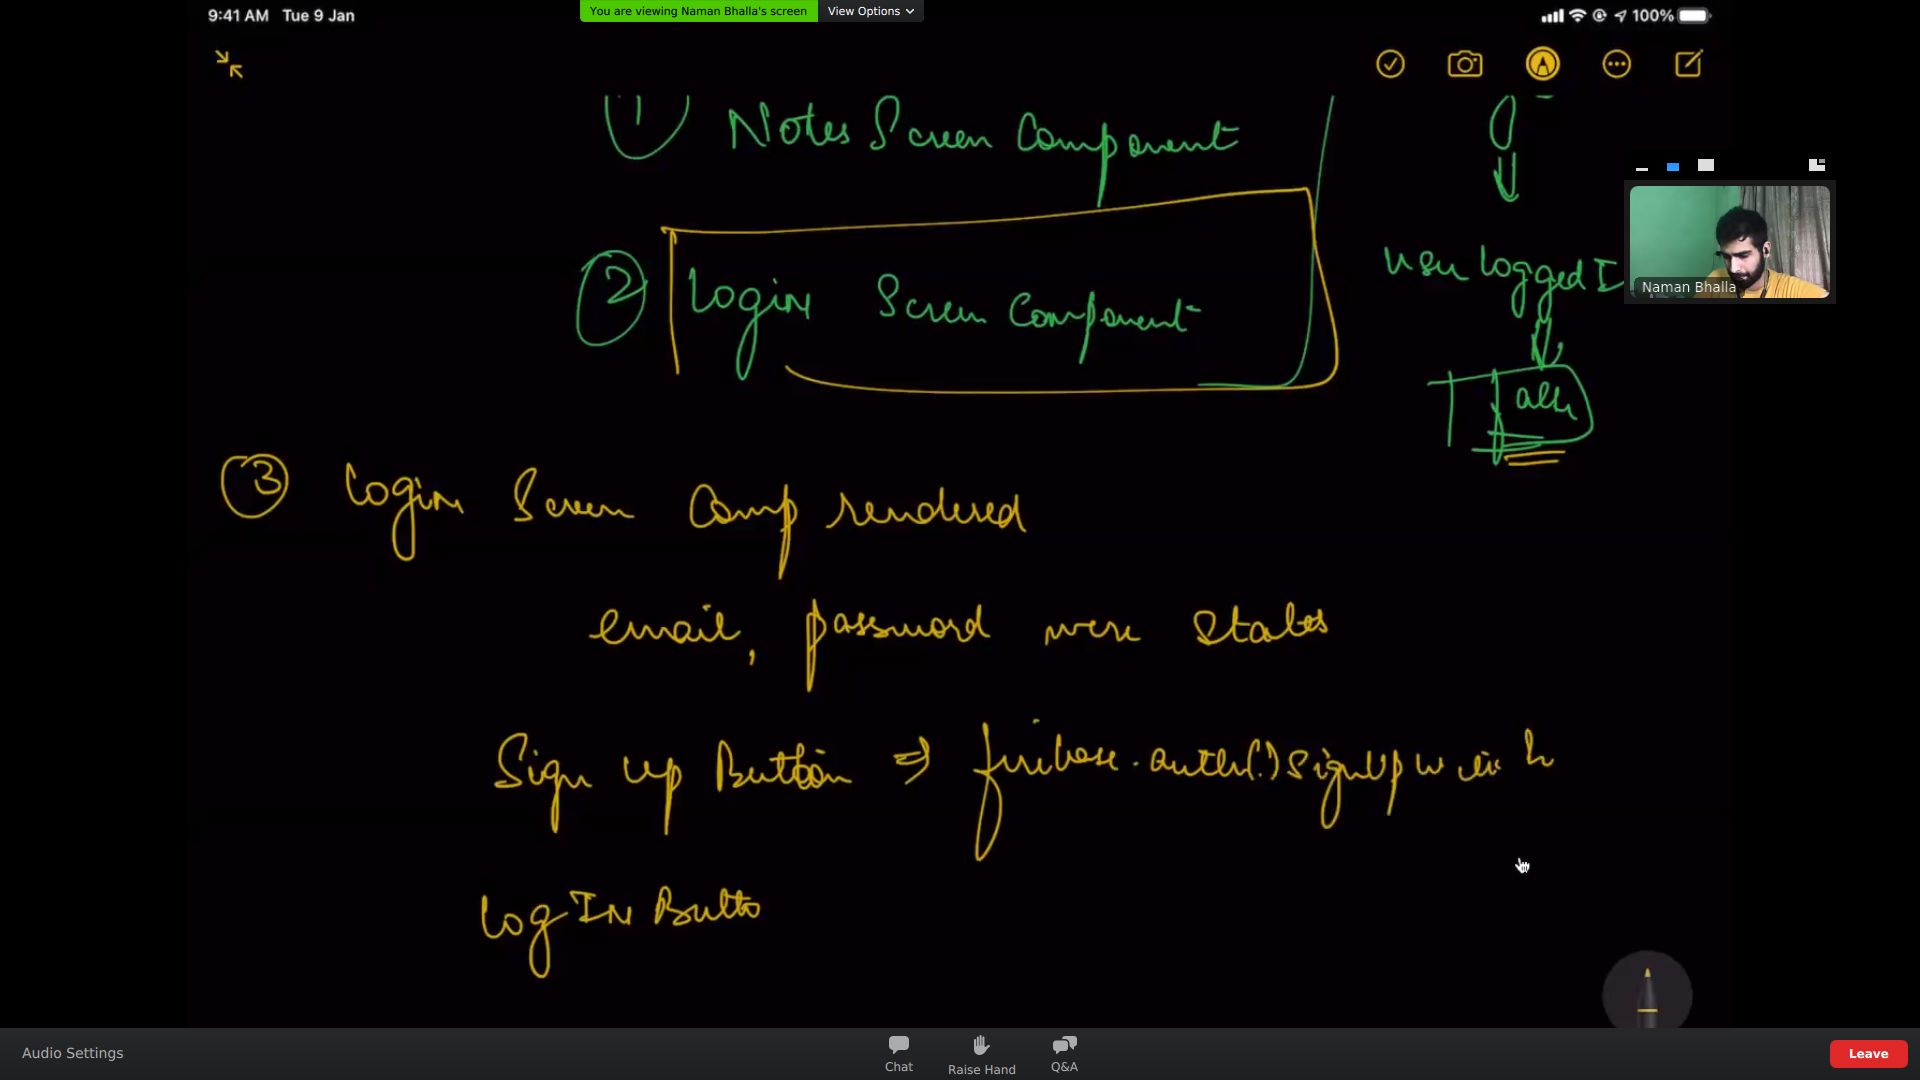 9:41 AM Tue 9 Jan
You are viewing Naman Bhalla's screen View Options
100%
1 Notes Screen Component
2 Login Screen Component
user logged I
Naman Bhalla
3 Login Screen Comp rendered
email, password were states
Sign up Button ⇒ firebase.auth().signUp with
Log IN Butto
Audio Settings
Chat
Raise Hand
Q&A
Leave